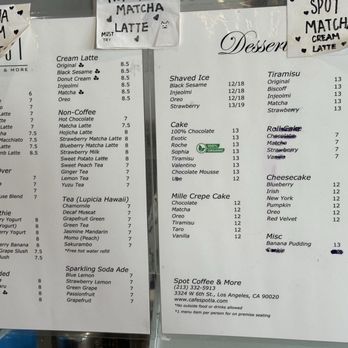 MATCHA
LATTE
SPOT
MATCHA
CREAM
LATTE
& MORE
Cream Latte
Original 8.5
Black Sesame 8.5
Donut Cream 8.5
Injeolmi 8.5
Matcha 8.5
Oreo 8.5
Non-Coffee
Hot Chocolate 7
Matcha Latte 7.5
Hojicha Latte 8
Strawberry Matcha Latte 8
Blueberry Matcha Latte 8
Strawberry Milk 8
Sweet Potato Latte 8
Peach Ginger Tea 7
Ginger Tea 7
Lemon Tea 7
Yuzu Tea 7
Tea (Lupicia Hawaii)
Chamomile 7
Decaf Muscat 7
Grapefruit Green 7
Green Tea 7
Jasmine Mandarin 7
Momo (Peach) 7
Sakurambo 7
*Free hot water refill
Sparkling Soda Ade
Blue Lemon 7
Strawberry Lemon 7
Green Grape 7
Passionfruit 7
Grapefruit 7
Shaved Ice
Black Sesame 12/18
Injeolmi 12/18
Oreo 12/18
Strawberry 13/19
Cake
100% Chocolate 13
Exotic 13
Roche 13
Sophia 13
Tiramisu 13
Valentino 13
Chocolate Mousse 13
Mille Crepe Cake
Chocolate 12
Matcha 12
Oreo 12
Tiramisu 12
Taro 12
Vanilla 12
Tiramisu
Original 13
Biscoff 13
Injeolmi 13
Matcha 13
Strawberry 13
Chocolate 7
Matcha 7
Strawberry 7
Vanilla 7
Cheesecake
Blueberry 12
Irish 12
New York 12
Pumpkin 12
Oreo 12
Red Velvet 12
Misc
Banana Pudding 13
Spot Coffee & More
(213) 332-5913
3324 W 6th St., Los Angeles, CA 90020
www.cafespotla.com
*No outside food or drinks allowed
*1 menu item per person for on premise seating